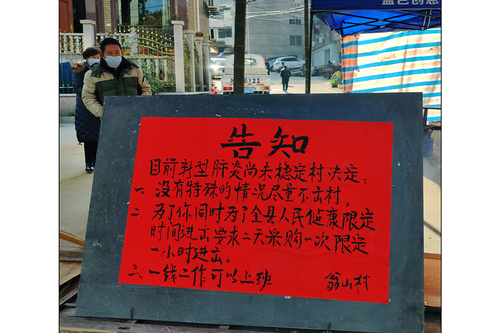 蓝色创意
告知
目前新型肝炎尚未稳定村决定:
一、没有特殊的情况尽量不出村。
二、为了你同时为了全县人民健康限定
时间进出要求二天采购一次限定
一小时进出。
三、一线工作可以上班 翁山村